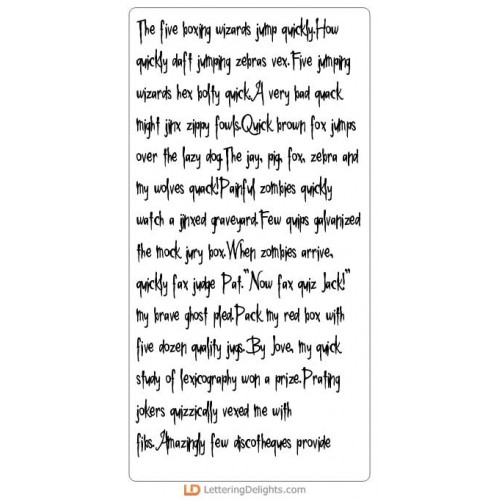 The five boxing wizards jump quickly.How
quickly daft jumping zebras vex.Five jumping
wizards hex bolty quick.A very bad quack
might jinx zippy fowls.Quick brown fox jumps
over the lazy dog.The jay, pig, fox, zebra and
my wolves quack!Painful zombies quickly
watch a jinxed graveyard.Few quips galvanized
the mock jury box.When zombies arrive,
quickly fax judge Pat."Now fax quiz Jack!"
my brave ghost pled.Pack my red box with
five dozen quality jugs.By Jove, my quick
study of lexicography won a prize.Prating
jokers quizzically vexed me with
fibs.Amazingly few discotheques provide
LD LetteringDelights.com